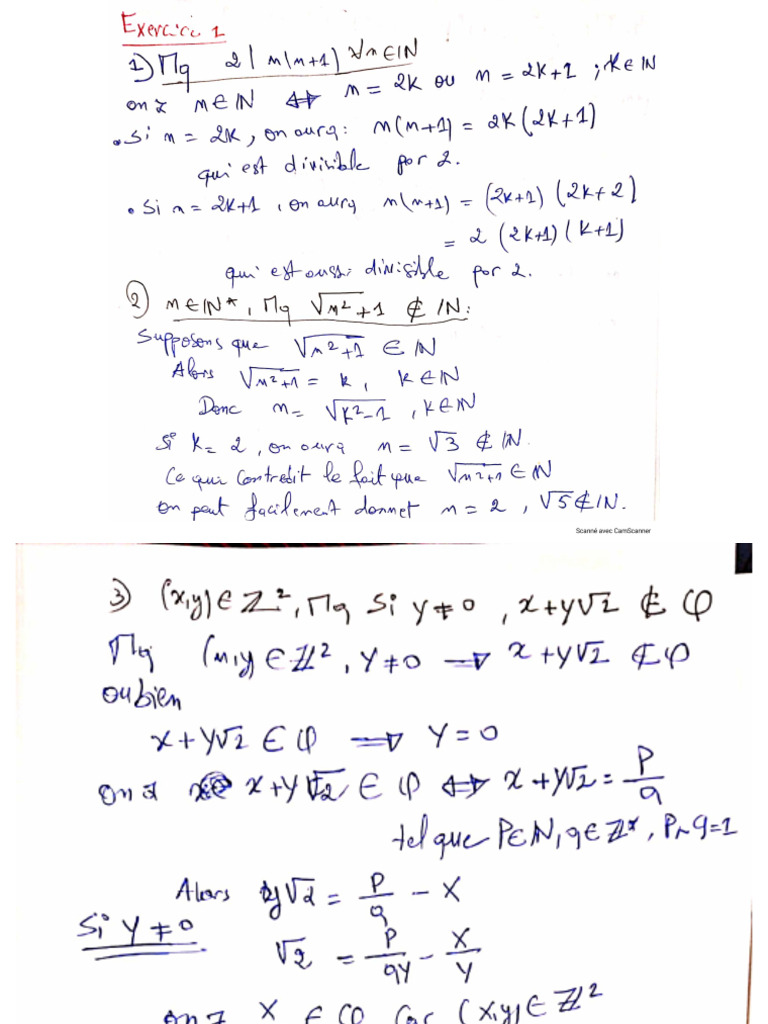 Exercice 1
1) Mq 2 | n(n+1) ∀n∈IN
on a n∈IN ⇔ n = 2K ou n = 2K+1 ; K∈IN
• Si n = 2K, on aura : n(n+1) = 2K(2K+1)
qui est divisible par 2.
• Si n = 2K+1, on aura n(n+1) = (2K+1)(2K+2)
= 2(2K+1)(K+1)
qui est aussi divisible par 2.
2) n∈IN*, Mq √n²+1 ∉ IN :
Supposons que √n²+1 ∈ IN
Alors √n²+1 = k, K∈IN
Donc n = √K²-1, K∈IN
Si K = 2, on aura n = √3 ∉ IN.
Ce qui contredit le fait que √n²+1 ∈ IN
On peut facilement donnet n = 2, √5 ∉ IN.
Scanné avec CamScanner
3) (x,y)∈ℤ², Mq Si y≠0, x+y√2 ∉ Q
Mq (x,y∈ℤ², Y≠0 ⟹ x+y√2 ∉ Q
ou bien
x+y√2 ∈ Q ⟹ Y=0
On a x+y√2 ∈ Q ⇔ x+y√2 = P/q
tel que P∈IN, q∈ℤ*, P∧q=1
Alors y√2 = P/q - X
Si Y≠0
√2 = P/qY - X/Y
on a X ∈ Q Car (X,y)∈ℤ²